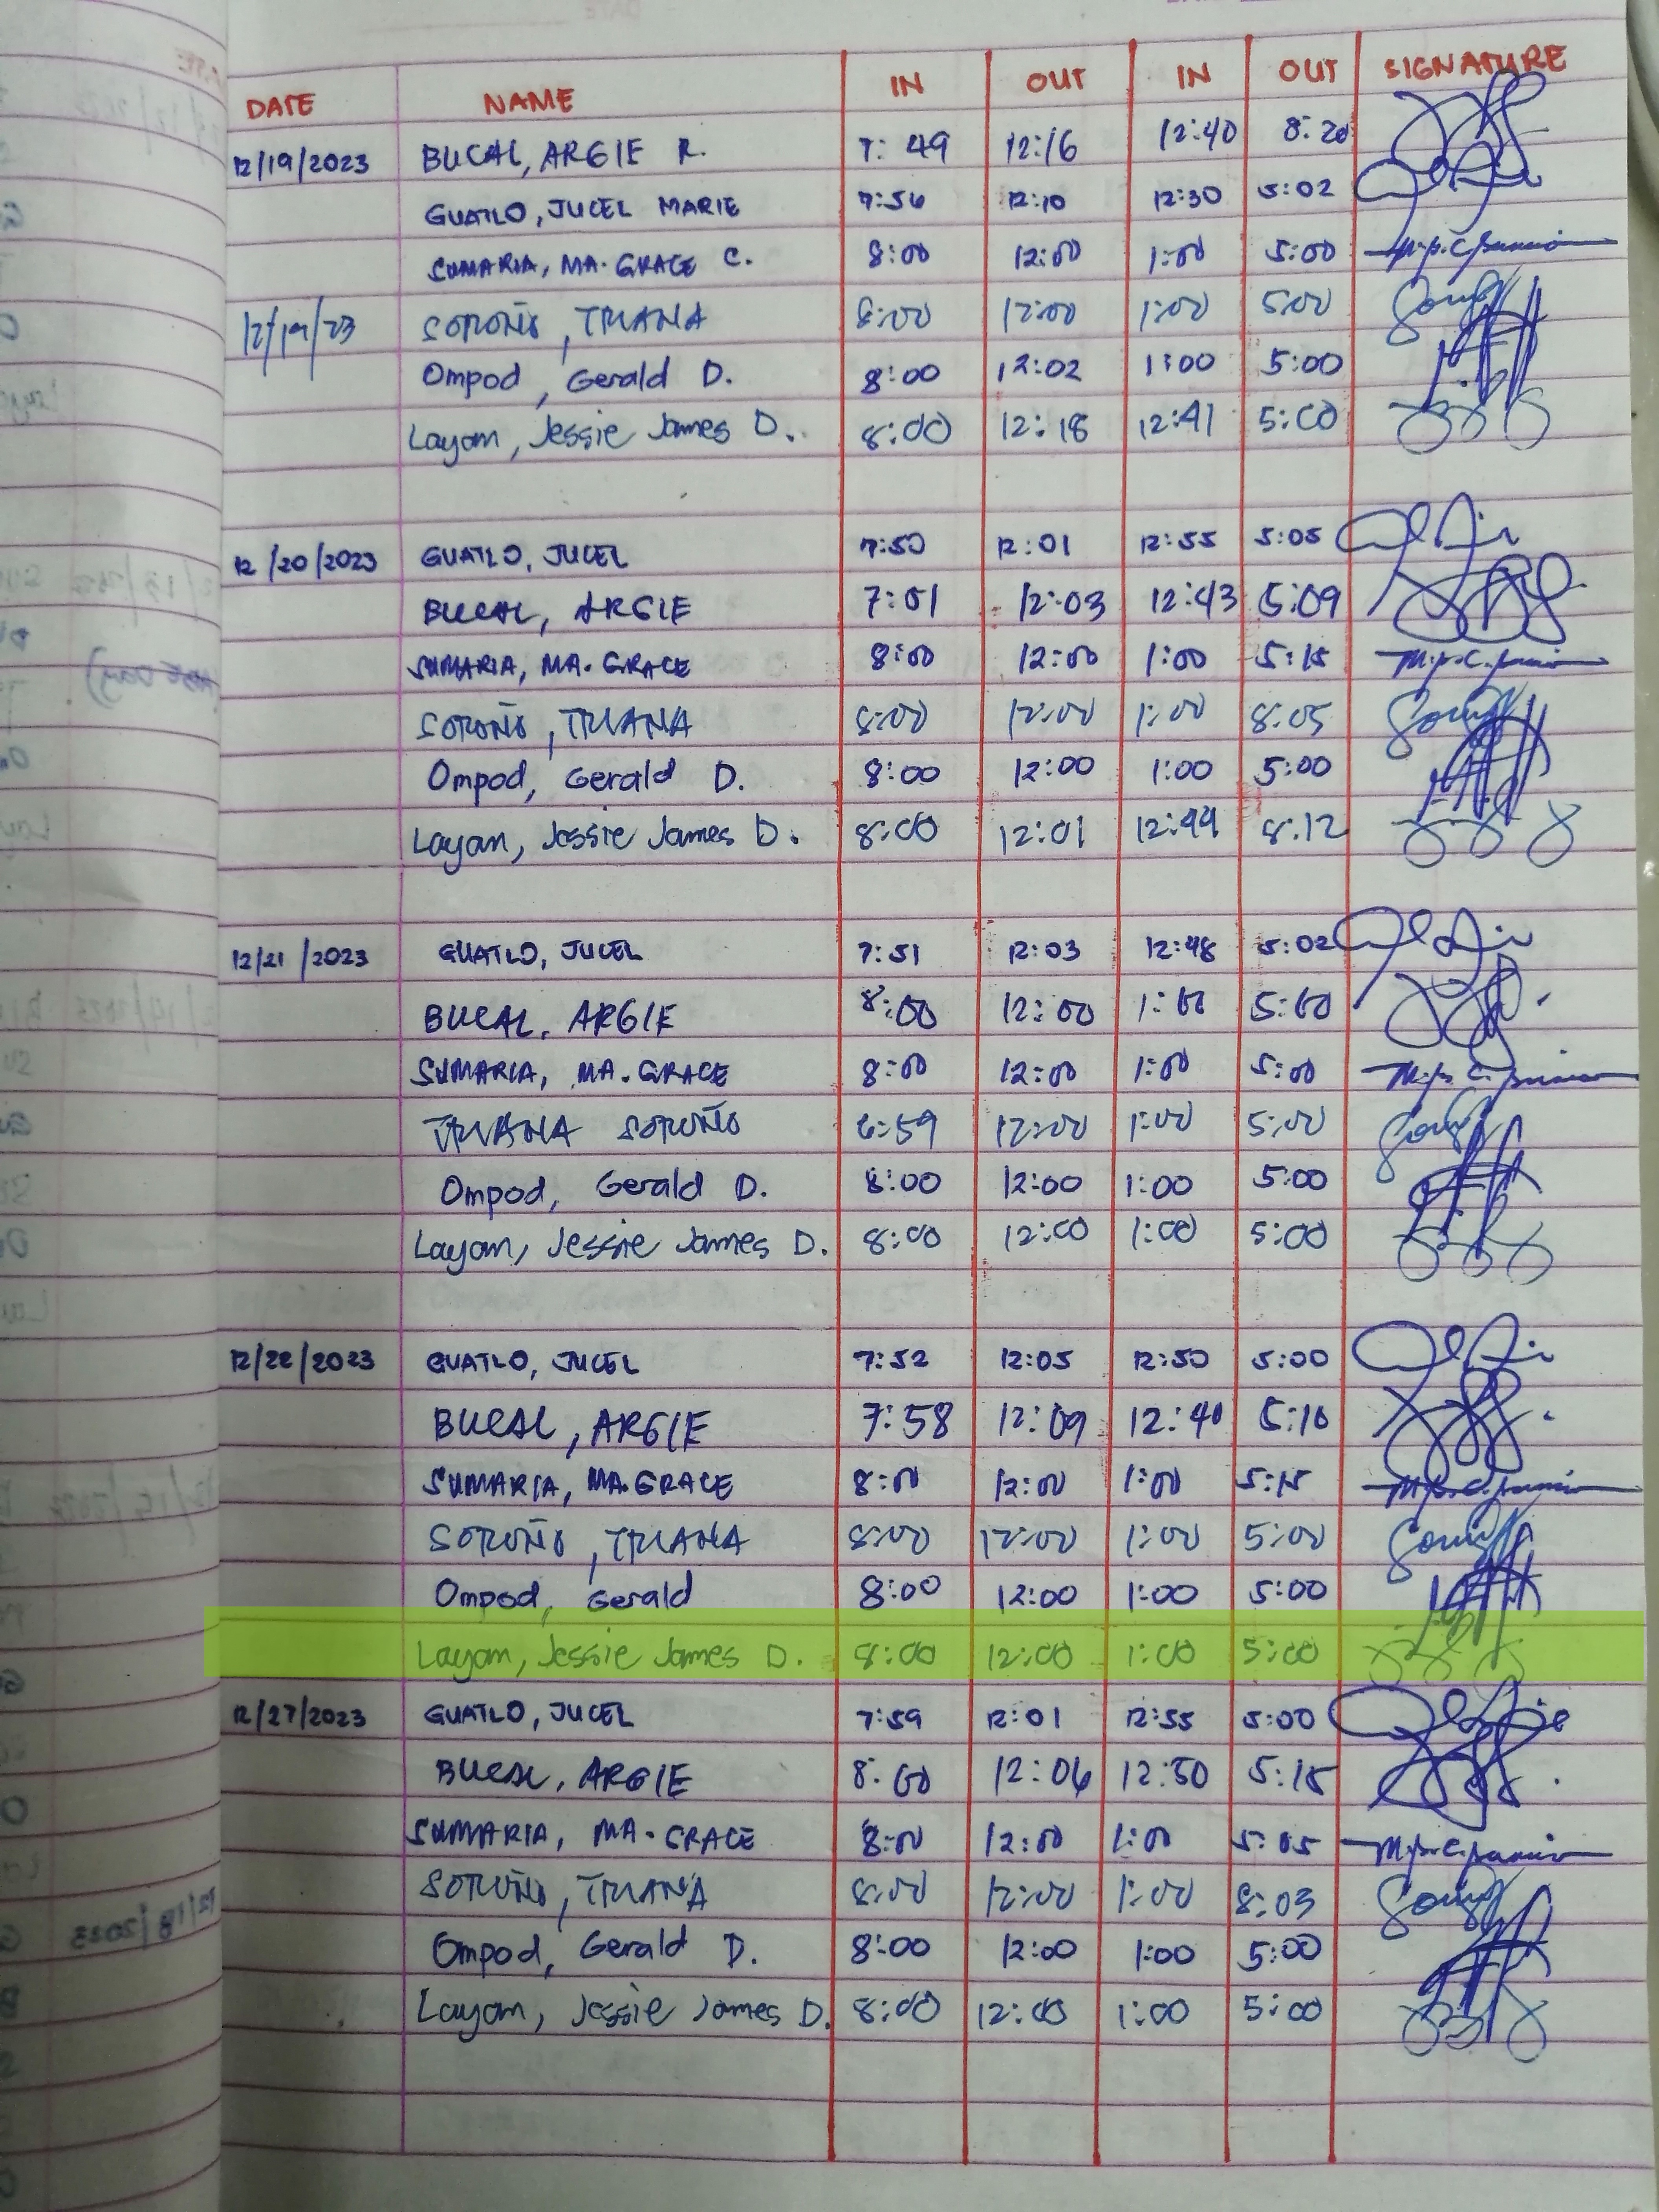 DATE NAME IN OUT IN OUT SIGNATURE
12/19/2023 BUCAL, ARGIE R. 7:49 12:16 12:40 8:20
GUATLO, JUCEL MARIE 7:56 12:10 12:30 5:02
SUMARIA, MA. GRACE C. 8:00 12:00 1:00 5:00
12/19/23 SOROÑO, TRIANA 8:00 12:00 1:00 5:00
Ompod, Gerald D. 8:00 12:02 1:00 5:00
Layam, Jessie James D. 8:00 12:18 12:41 5:00
12/20/2023 GUATLO, JUCEL 7:50 12:01 12:55 5:05
BUCAL, ARGIE 7:51 12:03 12:43 5:09
SUMARIA, MA. GRACE 8:00 12:00 1:00 5:15
SOROÑO, TRIANA 8:00 12:00 1:00 8:05
Ompod, Gerald D. 8:00 12:00 1:00 5:00
Layam, Jessie James D. 8:00 12:01 12:49 8:12
12/21/2023 GUATLO, JUCEL 7:51 12:03 12:48 5:02
BUCAL, ARGIE 8:00 12:00 1:00 5:00
SUMARIA, MA. GRACE 8:00 12:00 1:00 5:00
TRIANA SOROÑO 12:00 1:00 5:00
Ompod, Gerald D. 8:00 12:00 1:00 5:00
Layam, Jessie James D. 8:00 12:00 1:00 5:00
12/22/2023 GUATLO, JUCEL 7:52 12:05 12:50 5:00
BUCAL, ARGIE 7:58 12:09 12:40 5:10
SUMARIA, MA. GRACE 8:00 12:00 1:00 5:15
SOROÑO, TRIANA 8:00 12:00 1:00 5:00
Ompod, Gerald 8:00 12:00 1:00 5:00
Layam, Jessie James D. 8:00 12:00 1:00 5:00
12/27/2023 GUATLO, JUCEL 7:59 12:01 12:55 5:00
BUCAL, ARGIE 8:00 12:06 12:50 5:15
SUMARIA, MA. GRACE 8:00 12:00 1:00 5:05
SOROÑO, TRIANA 8:00 12:00 1:00 8:03
Ompod, Gerald D. 8:00 12:00 1:00 5:00
Layam, Jessie James D. 8:00 12:00 1:00 5:00